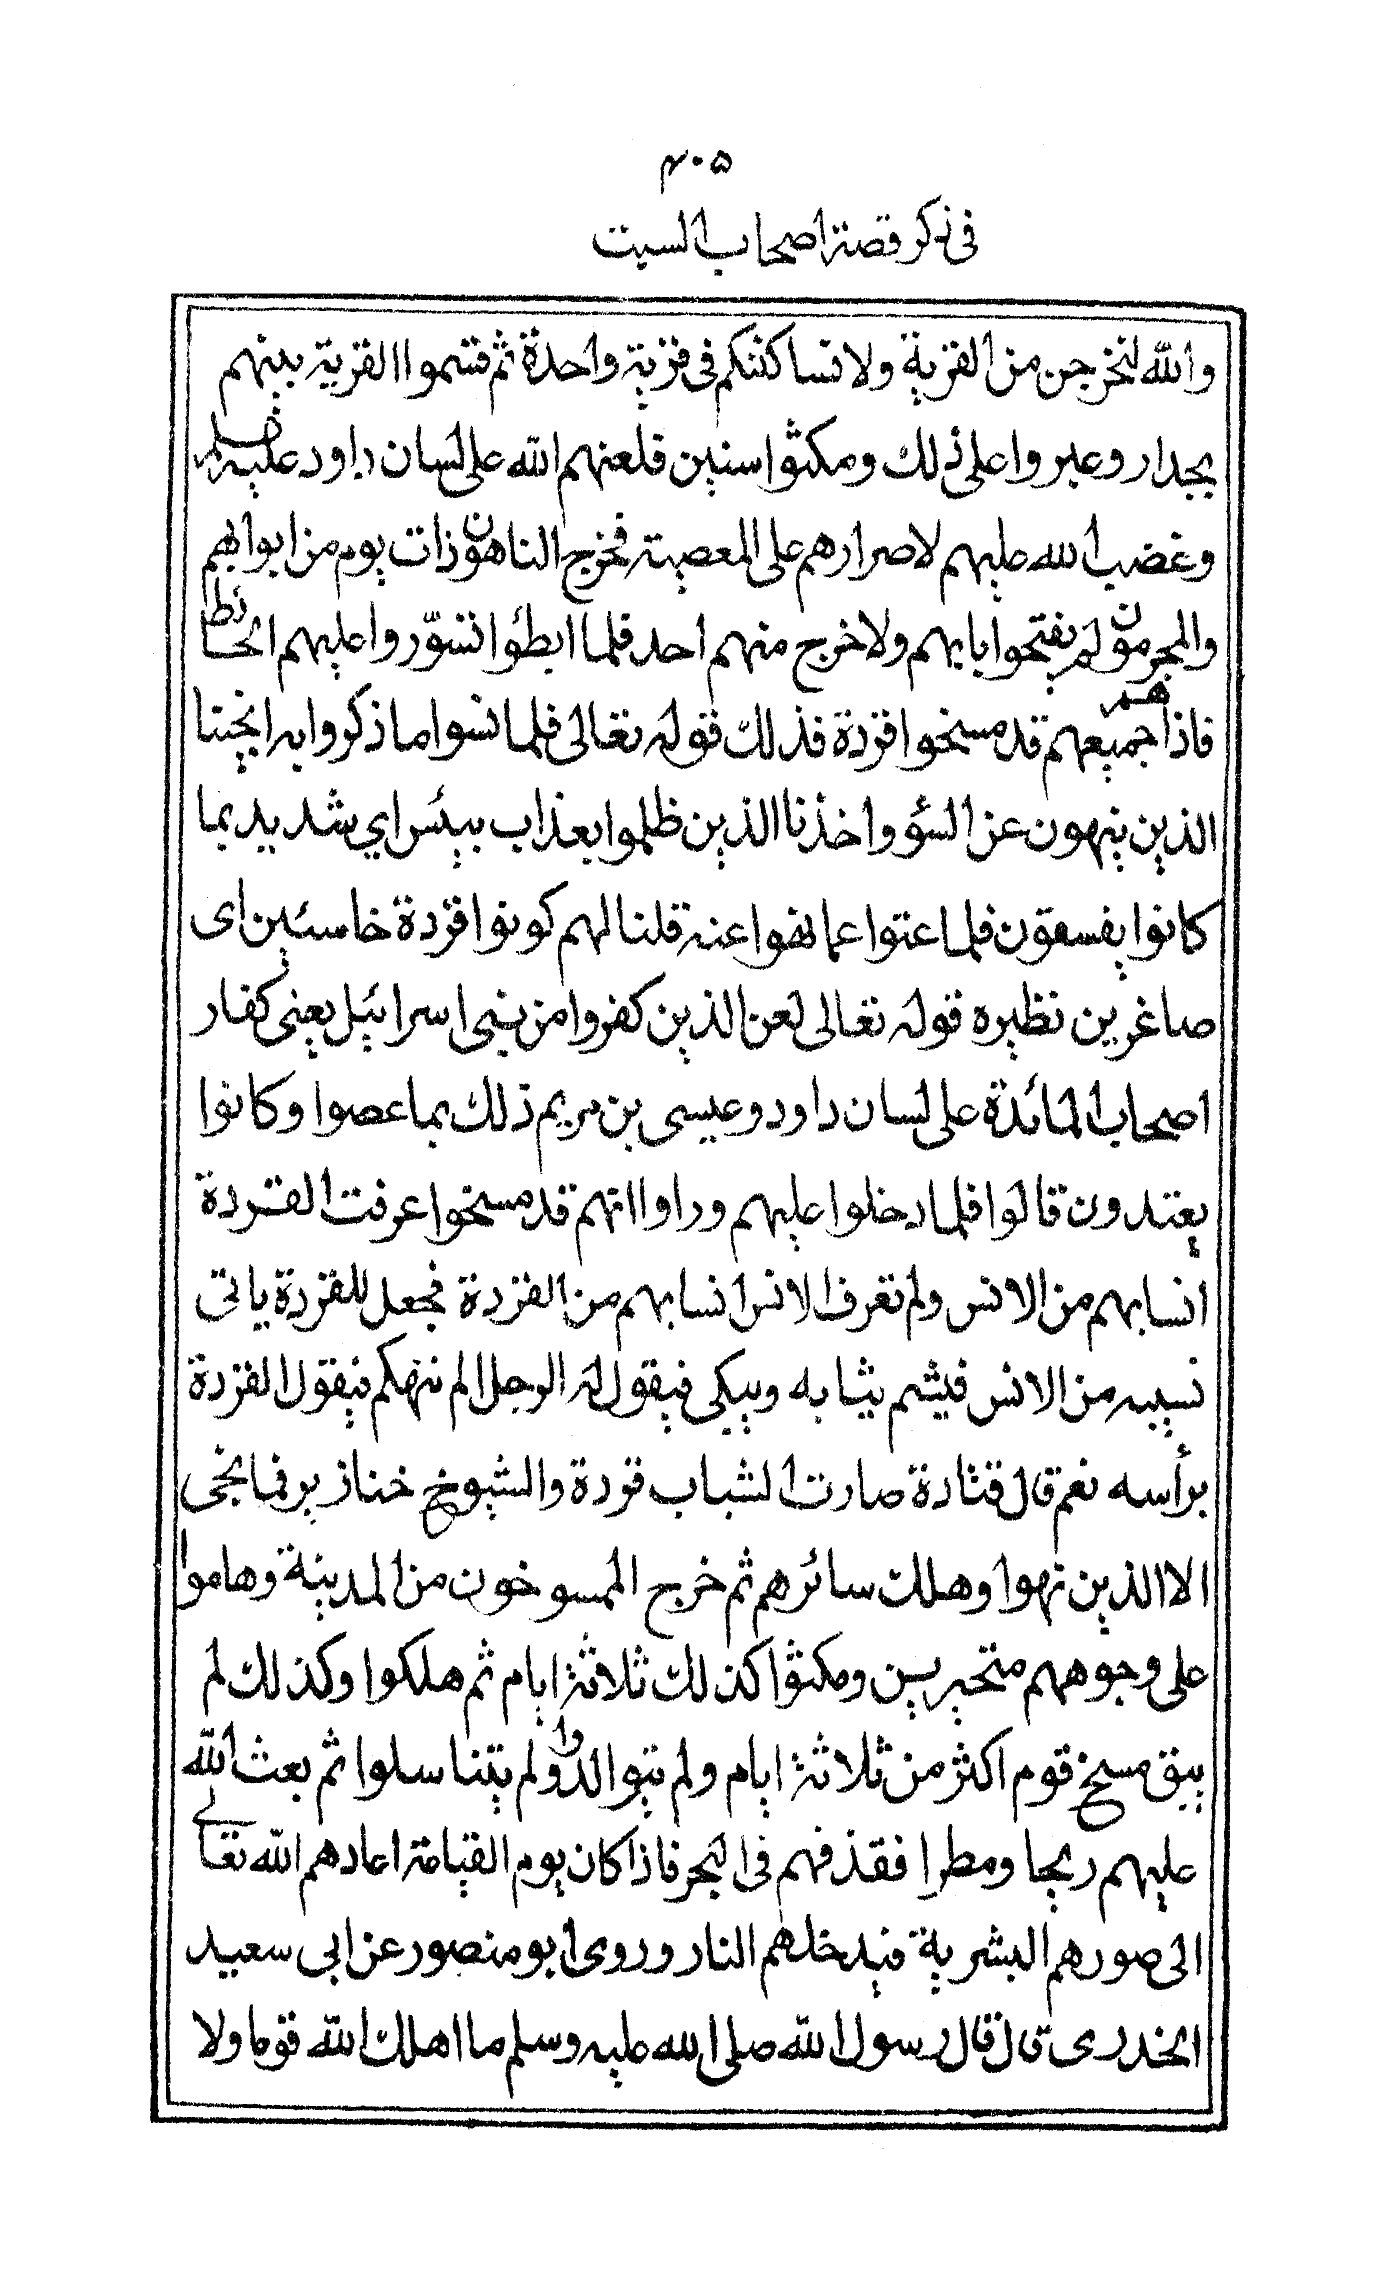 ۴۰۵
فى ذكر قصة اصحاب السبت
والله لنخرجن من القرية ولانساكننكم فى قرية واحدة ثم قسموا القرية بينهم
بجدار وعبروا على ذلك ومكثوا سنين فلعنهم الله على لسان داود عليه السلام
وغضب الله عليهم لاصرارهم على المعصية فخرج الناهون ذات يوم من ابوابهم
والمجرمون لم يفتحوا بابهم ولا خرج منهم احد فلما ابطئوا تسوّروا عليهم الحائط
فاذا هم جميعهم قد مسخوا قردة فذلك قوله تعالى فلما نسوا ما ذكروا به انجينا
الذين ينهون عن السؤ واخذنا الذين ظلموا بعذاب بيئس اي شديد بما
كانوا يفسقون فلما عتوا عما نهوا عنه قلنا لهم كونوا قردة خاسئين اى
صاغرين نظيره قوله تعالى لعن الذين كفروا من بنى اسرائيل يعنى كفار
اصحاب المائدة على لسان داود وعيسى بن مريم ذلك بما عصوا وكانوا
يعتدون قالوا فلما دخلوا عليهم وراوا انهم قد مسخوا عرفت القردة
انسابهم من الانس ولم تعرف الانس انسابهم من القردة فجعل للقردة ياتى
نسيبه من الانس فيشم ثيابه ويبكى فيقول له الرجل الم ننهكم فيقول القردة
برأسه نعم قال قتادة صارت الشباب قردة والشيوخ خنازير فما نجى
الا الذين نهوا وهلك سائرهم ثم خرج الممسوخون من المدينة وهاموا
على وجوههم متحيريين ومكثوا كذلك ثلاثة ايام ثم هلكوا وكذلك لم
يبق مسخ قوم اكثر من ثلاثة ايام ولم يتوالدوا ولم يتناسلوا ثم بعث الله
عليهم ريحا ومطرا فقذفهم فى البحر فاذا كان يوم القيامة اعادهم الله تعالى
الى صورهم البشرية فيدخلهم النار وروى ابو منصور عن ابى سعيد
الخدرى قال قال رسول الله صلى الله عليه وسلم ما اهلك الله قوما ولا